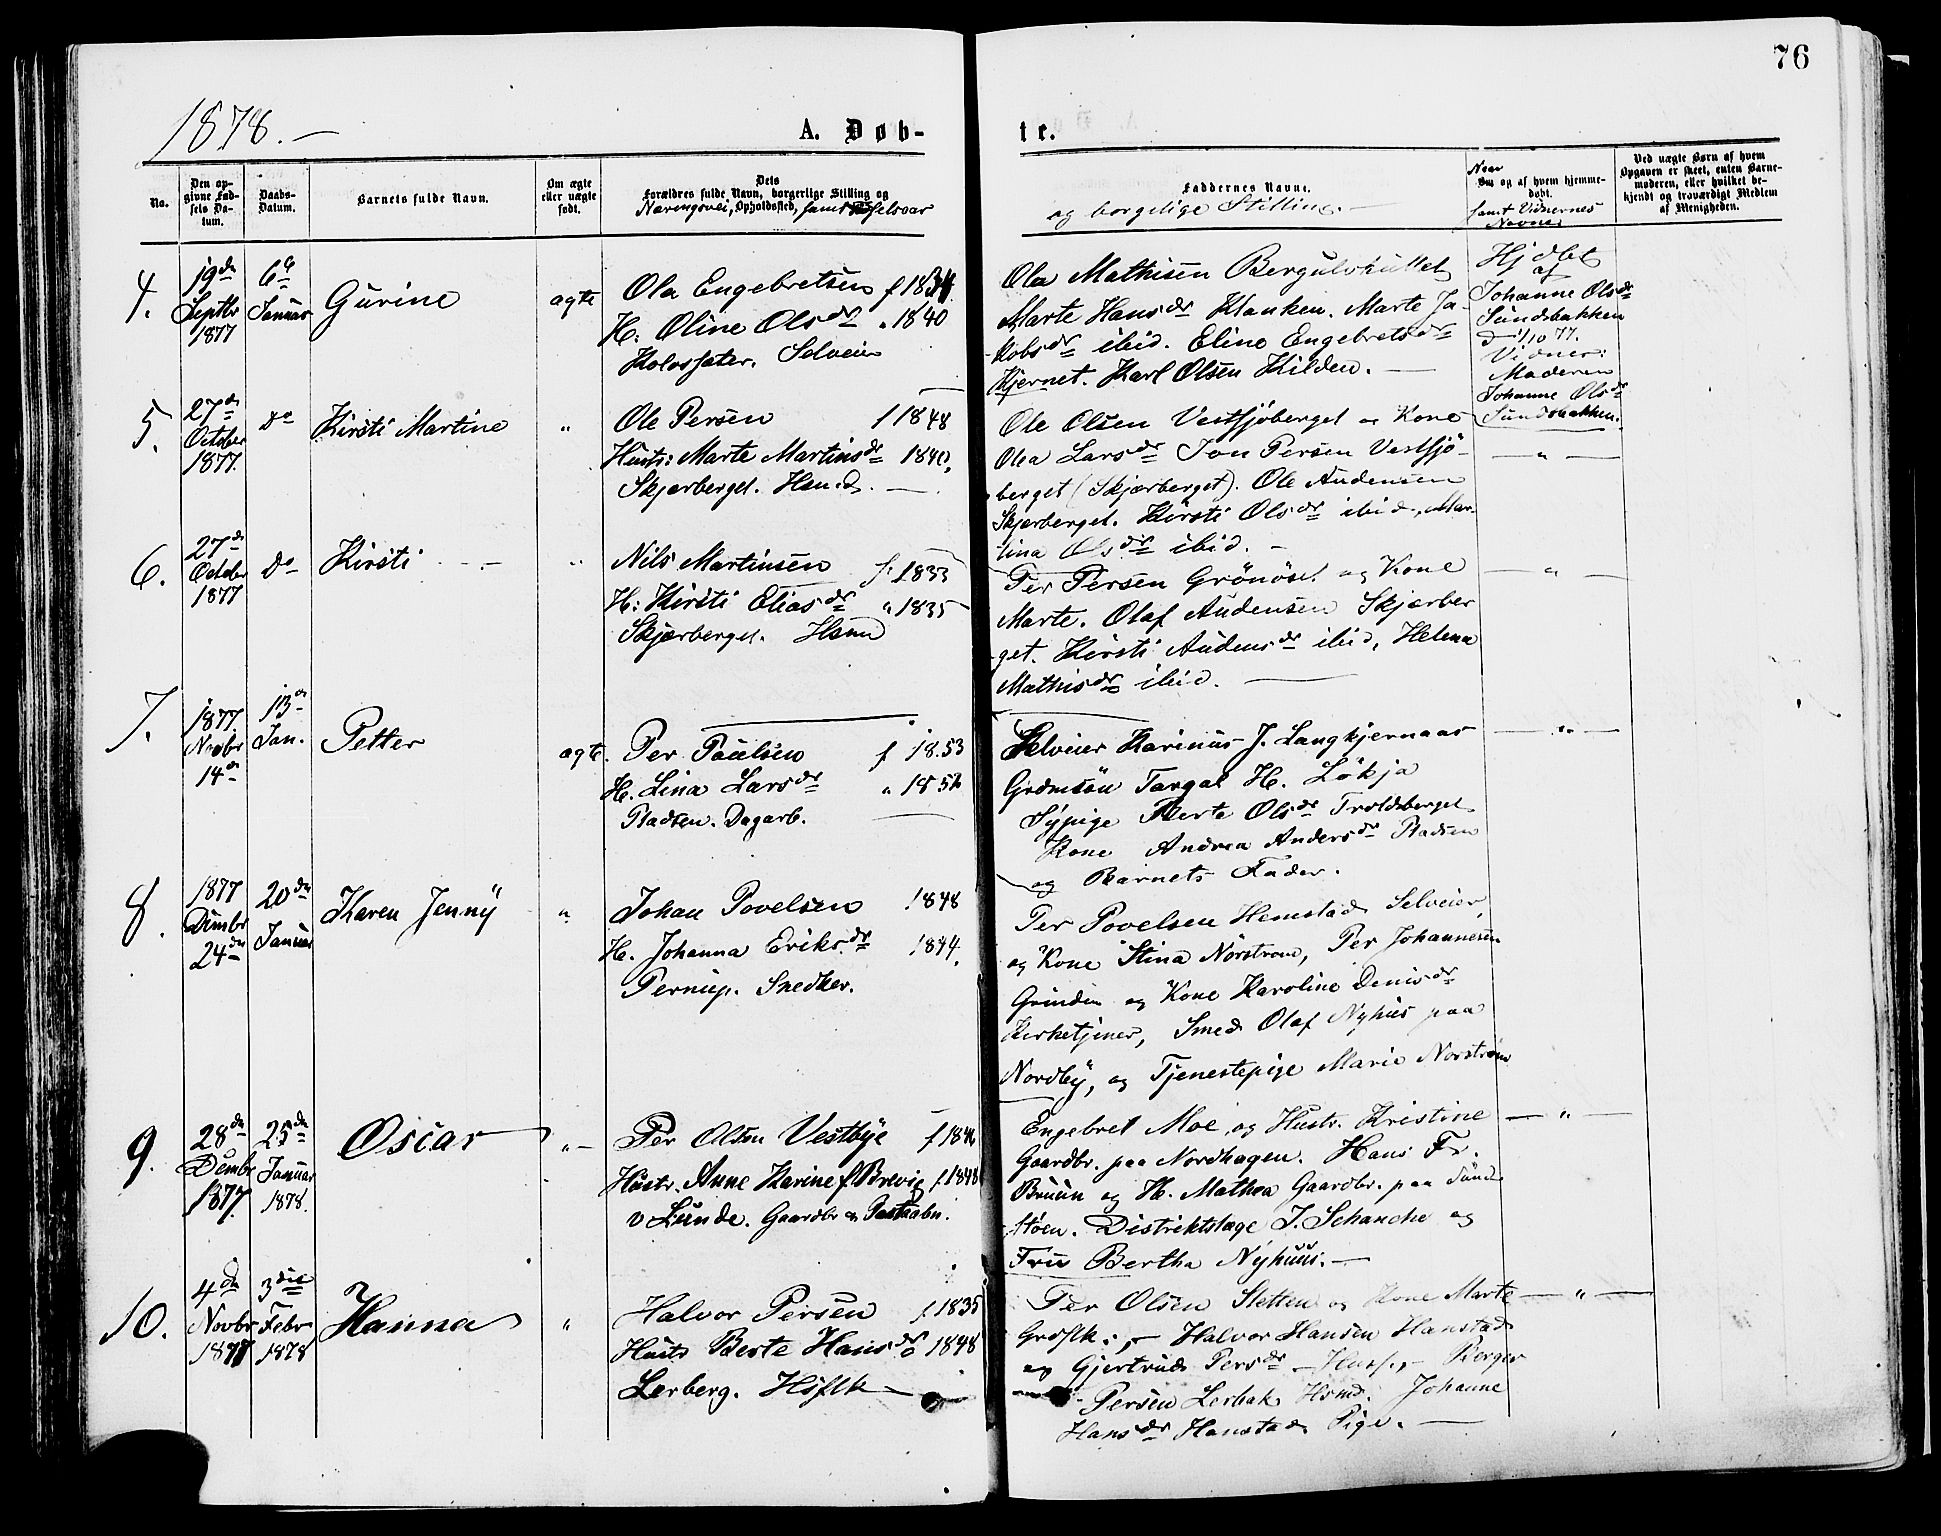 76
1878.-
A. Døb-
te.
No.
Den op-
givne Fød-
sels Da-
tum.
Daabs-
Datum.
Barnets fulde Navn.
Om ægte
eller uægte
født.
Dets
Forældres fulde Navn, borgerlige Stilling og
Næringsvei, Opholdssted, samt Fødselsaar
Faddernes Navne.
og borgelige Stilling.-
Naar
Om og af hvem hjemme-
døbt.
samt Vidnernes
Navne.
Ved uægte Børn af hvem
Opgaven er skeet, enten Barne-
moderen, eller hvilket be-
kjendt og troværdigt Medlem
af Menigheden.
4.
19de
Septbr
1877
6te
Januar
Gurine
ægte
Ola Engebretsen f 1834
H: Oline Olsdr " 1840
Kolosæter. Selveier
Ola Mathisen Bergulvhullet
Marte Hansdr Klanken. Marte Ja-
kobsdr ibid. Eline Engebretsdr
Kjernet. Karl Olsen Kilden. -
Hjdbt
af
Johanne Olsdr
Sundbakken
d 1/10 77.
Vidner:
Moderen
Johanne Olsdr
Sundbakken.
5.
27de
October
1877.
do
Kirsti Martine
"
Ole Persen f 1848
Hustr: Marte Martinsdr 1840,
Skjærberget. Hsmd. -
Ole Olsen Vestsjøberget og Kone
Olea Larsdr Jon Persen Vestsjø-
berget (Skjærberget). Ole Audensen
Skjærberget. Kirsti Olsdr ibid, Mar-
tina Olsdr ibid. -
- " -
6.
27de
October
1877
do
Kirsti -
"
Nils Martinsen f: 1833
H: Kirsti Eliasdr " 1835
Skjærberget. Hsmd
Per Persen Grønøset og Kone
Marte. Olaf Audensen Skjærber
get. Kirsti Audensdr ibid, Helena
Mathisdr ibid. -
- " -
7.
1877
Novbr
14de
13de
Jan.
Petter
ægte.
Per Paulsen f 1853
H. Lina Larsdr " 185
Pladsen. Dagarb.
Selveier Karinus J. Langkjernaas
Grdmsøn Torgal H. Løkja
Sypige Berte Olsdr Troldberget
Kone Andrea Andersdr Pladsen
og Barnets Fader.
- " -
8.
1877
Dembr
24de
20de
Januar
Karen Jenny
"
Johan Povelsen 1848
H. Johanna Eriksdr 1844.
Pernup. Snedker.
Per Povelsen Hemstad Selveier,
og Kone Stina Norstrom, Per Johannesen
Grinden og Kone Karoline Denisdr
Kirketjener, Smed Olaf Nyhus paa
Nordby, og Tjenestepige Marie Norstrøm
9.
28de
Dembr
1877
25de
Januar
1878.
Oscar
" -
Per Olsen Vestbye f 184
Hustr. Anne Karine f. Brevig f. 1848
v Lunde. Gaardbr & Postaabn.
Engebret Moe, og Hustr. Kristine
Gaardbr. paa Nordhagen. Hans Fr.
Bruun og H. Mathea Gaardbr. paa Sund
støen. Distriktslæge J. Schanche og
Fru Bertha Nyhuus. -
- " -
10.
4de
Novbr
1877
3die
Febr
1878
Hanna
"
Halvor Persen f. 1835
Hustr Berte Hansdr 1848
Lerberg. Hsflk -
Per Olsen Sletten og Kone Marte
Grdflk., - Halvor Hansen Hanstad
og Gjertrud Persdr - Husf., - Berger
Persen Lerbak Hsmd. Johanne
Hansdr Hanstad Pige. -
- " -